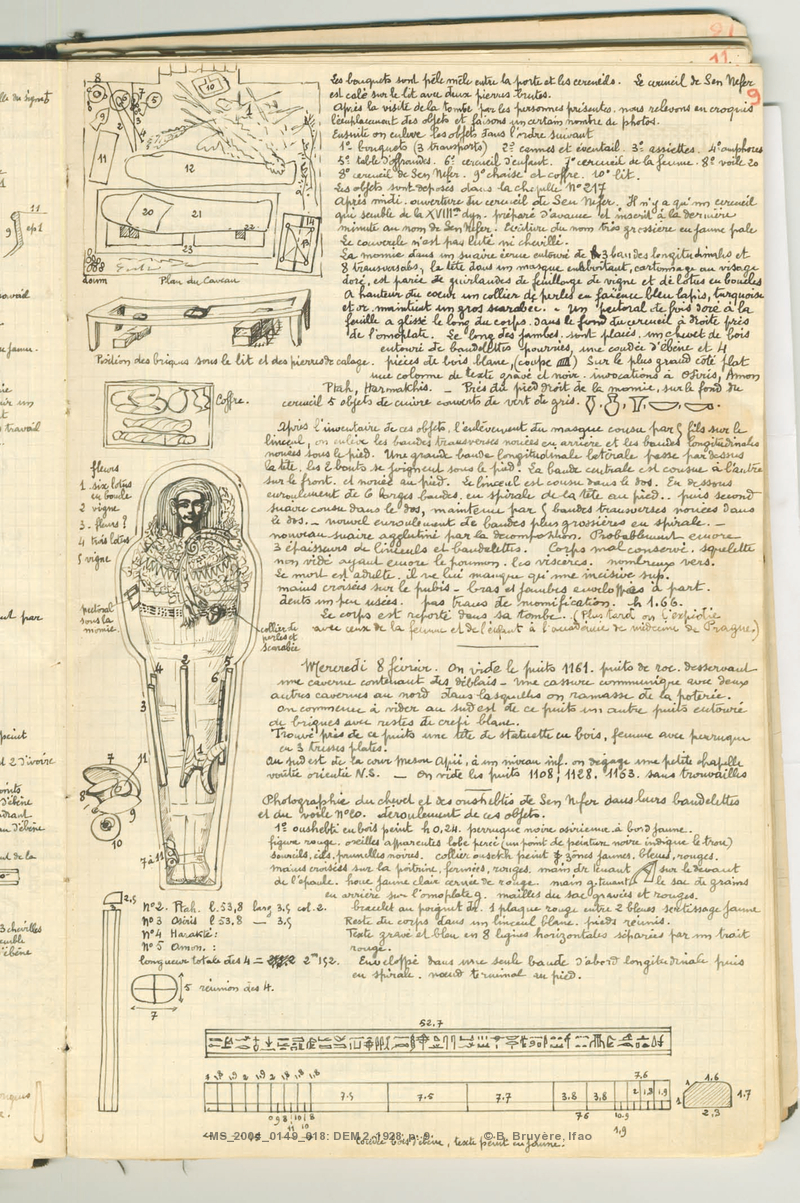 11
9
Les bouquets sont pêle mêle entre la porte et les cercueils. Le cercueil de Sen Nefer
est calé sur le lit avec deux pierres brutes.
Après la visite de la tombe par les personnes présentes nous relevons en croquis
l'emplacement des objets et faisons un certain nombre de photos.
Ensuite on enlève les objets dans l'ordre suivant
1° bouquets (3 transports) 2° cannes et éventail. 3° assiettes. 4° amphores
5° table d'offrandes. 6° cercueil d'enfant. 7° cercueil de la femme. 8° voile 20
8° cercueil de Sen Nefer. 9° chaise et coffre. 10° lit.
Les objets sont déposés dans la chapelle N° 217
Après midi. ouverture du cercueil de Sen Nefer. Il n'y a qu'un cercueil
qui semble de la XVIII dyn. préparé d'avance et inscrit à la dernière
minute au nom de Sen Nefer. Ecriture du nom très grossière en jaune pale
Le couvercle n'est pas luté ni chevillé.
La momie dans un suaire écrue entouré de 3 bandes longitudinales et
8 transversales, la tête dans un masque emboitant, cartonnage au visage
doré, est parée de guirlandes de feuillage de vigne et de lotus en boucles
A hauteur du coeur un collier de perles en faïence bleu lapis, turquoise
et or maintient un gros scarabée. - Un pectoral de bois doré à la
feuille a glissé le long du corps. dans le fond du cercueil à droite près
de l'omoplate. Le long des jambes. sont placés un chevet de bois
entouré de bandelettes pourries, une coudée d'ébène et 4
pièces de bois blanc, (coupe) Sur le plus grand côté plat
une colonne de texte gravé et noir. invocations à Osiris, Amon
Ptah, Harmakhis. - Près du pied droit de la momie, sur le fond du
cercueil 5 objets de cuivre couverts de vert de gris.
8
6
7
5
2
4
10
11
12
20
21
22
23
doum
Plan du Caveau
Position des briques sous le lit et des pierres de calage.
Coffre.
Après l'inventaire de ces objets, l'enlèvement du masque cousu par 5 fils sur le
linceul, on enlève les bandes transverses nouées en arrière et les bandes longitudinales
nouées sous le pied. Une grande bande longitudinale latérale passe par dessus
la tête, les 2 bouts se joignent sous le pied. La bande centrale est cousue à l'autre
sur le front. et nouée au pied. Le linceul est cousu dans le dos. En dessous
enroulement de 6 larges bandes en spirale de la tête au pied.. puis second
suaire cousu dans le dos, maintenu par 5 bandes transverses nouées dans
le dos. - nouvel enroulement de bandes plus grossières en spirale. -
nouveau suaire agglutiné par la décomposition. Probablement encore
3 épaisseurs de linceuls et bandelettes. Corps mal conservé. squelette
non vidé ayant encore le poumon. les viscères. nombreux vers.
Le mort est adulte. il ne lui manque qu'une incisive sup.
mains croisées sur le pubis - bras et jambes enveloppés à part.
dents un peu usées. pas traces de momification. h 1.66.
Le corps est reporté dans sa tombe. (Plus tard on l'expédie
avec ceux de la femme et de l'enfant à l'académie de médecine de Prague.)
fleurs
1 six lotus
en boule
2 vigne
3. fleurs ?
4 trois lotus
5 vigne
pectoral
sous la
momie.
collier de
perles et
scarabée
2
5
3
6
4
1
11
7
8
9
10
7 à 11
Mercredi 8 février. On vide le puits 1161. puits de roc. desservant
une caverne contenant des déblais - Une cassure communique avec deux
autres cavernes au nord dans lesquelles on ramasse de la poterie.
On commence à vider au sud est de ce puits un autre puits entouré
de briques avec restes de crépi blanc.
Trouvé près de ce puits une tête de statuette en bois, femme avec perruque
en 3 tresses plates.
Au sud est de la cour meson Apii, à un niveau inf. on dégage une petite chapelle
voûtée orientée N.S. - On vide les puits 1108, 1128. 1163. sans trouvailles
Photographie du chevet et des oushebtis de Sen Nefer dans leurs bandelettes
et du voile N° 20. déroulement de ces objets.
1° oushebti en bois peint h 0,24. perruque noire osirienne à bord jaune.
figure rouge. oreilles apparentes lobe percé (un point de peinture noire indique le trou)
sourcils, cils, prunelles noires. collier ousekh peint 5 zones jaunes, bleues, rouges.
mains croisées sur la poitrine, fermées, rouges. main dr. tenant sur le devant
de l'épaule. houe jaune clair cernée de rouge. main g. tenant le sac de grains
en arrière sur l'omoplate g. mailles du sac gravées et rouges.
bracelet au poignet dr. 1 plaque rouge entre 2 bleues sertissage jaune
Reste du corps dans un linceul blanc. pieds réunis.
Texte gravé et bleu en 8 lignes horizontales séparées par un trait
rouge.
Enveloppé dans une seule bande d'abord longitudinale puis
en spirale. noeud terminal au pied.
2,5
N° 2. Ptah. l. 53,8 larg 3.5 col. 2.
N° 3 Osiris l 53,8 — 3,5
N° 4 Harakté:
N° 5 Amon. :
longueur totale des 4 = 2m152.
5 réunion des 4.
7
52.7
1,8 1,9 2 1,9 2 1,8 1,8 1,8
7.5
7.5
7.7
3.8
3.8
7.6
2 1,9 1,9
7.6
10.9
1,9
1.6
1
1.7
2,3
MS_2004_0149_018: DEM 2, 1928; p. 9. © B. Bruyère, Ifao
coudée bois d'ébène, texte peint en jaune.